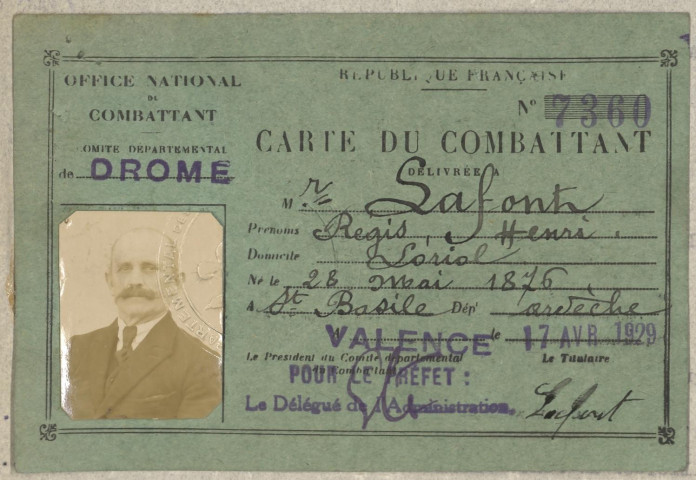 OFFICE NATIONAL
DU
COMBATTANT
OMITE DEPARTEMENTAL
de DROME
REPUBLIQUE FRANÇAISE
N° 7360
CARTE DU COMBATTANT
DÉLIVRÉE A
M r Lafont
Prénoms Regis, Henri.
Domicile Loriol
Né le 28 mai 1876
A St Basile Dép' ardèche
A VALENCE le 17 AVR 1929
Le Président du Comité départemental
du Combattant
Le Titulaire
POUR LE PREFET :
Le Délégué de l'Administration,
Lafont